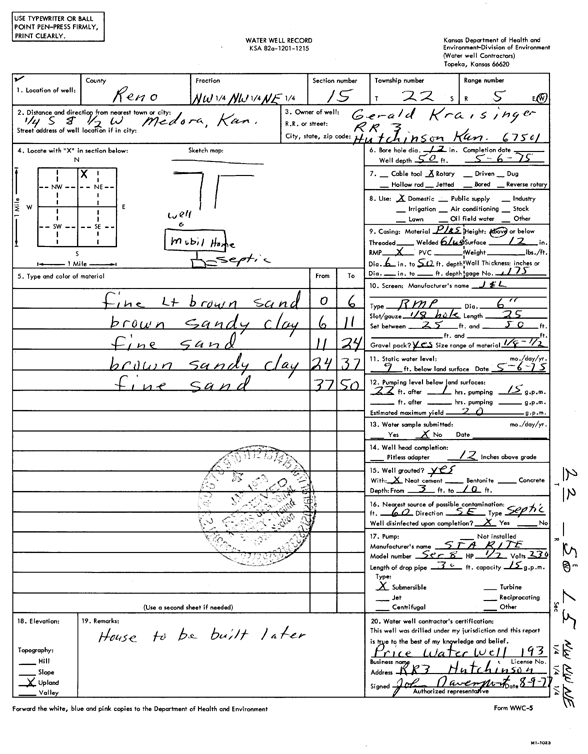 USE TYPEWRITER OR BALL
POINT PEN-PRESS FIRMLY,
PRINT CLEARLY.
WATER WELL RECORD
KSA 82a-1201-1215
Kansas Department of Health and
Environment-Division of Environment
(Water well Contractors)
Topeka, Kansas 66620
1. Location of well:
County
Reno
Fraction
NW 1/4 NW 1/4 NE 1/4
Section number
15
Township number
T 22 S
Range number
R 5 E/W
2. Distance and direction from nearest town or city:
1/4 S 8 1/2 W Medora, Kan.
Street address of well location if in city:
3. Owner of well: Gerald Kraisinger
R.R. or street: RR 3
City, state, zip code: Hutchinson Kan. 67501
4. Locate with "X" in section below:
N
X
NW NE
W E
SW SE
S
1 Mile
1 Mile
Sketch map:
well
Mobil Home
septic
6. Bore hole dia. 12 in. Completion date
Well depth 50 ft. 5-6-75
7. Cable tool X Rotary Driven Dug
Hollow rod Jetted Bored Reverse rotary
8. Use: X Domestic Public supply Industry
Irrigation Air conditioning Stock
Lawn Oil field water Other
9. Casing: Material Plas Height: Above or below
Threaded Welded Glue Surface 12 in.
RMP X PVC Weight lbs./ft.
Dia. 6 in. to 50 ft. depth Wall Thickness: inches or
Dia. in. to ft. depth gage No. .175
5. Type and color of material
From To
fine Lt brown sand 0 6
brown sandy clay 6 11
fine sand 11 24
brown sandy clay 24 37
fine sand 37 50
10. Screen: Manufacturer's name J&L
Type RMP Dia. 6"
Slot/gauze 1/8 hole Length 25
Set between 25 ft. and 50 ft.
ft. and ft.
Gravel pack? yes Size range of material 1/8-1/2
11. Static water level: mo./day/yr.
9 ft. below land surface Date 5-6-75
12. Pumping level below land surfaces:
22 ft. after 1 hrs. pumping 15 g.p.m.
ft. after hrs. pumping g.p.m.
Estimated maximum yield 20 g.p.m.
13. Water sample submitted: mo./day/yr.
Yes X No Date
14. Well head completion:
Pitless adapter 12 Inches above grade
15. Well grouted? yes
With: X Neat cement Bentonite Concrete
Depth: From 3 ft. to 10 ft.
16. Nearest source of possible contamination:
ft. 60 Direction SE Type Septic
Well disinfected upon completion? X Yes No
17. Pump: Not installed
Manufacturer's name STA RITE
Model number Ser 8 HP 1/2 Volts 230
Length of drop pipe 30 ft. capacity 15 g.p.m.
Type:
X Submersible Turbine
Jet Reciprocating
Centrifugal Other
(Use a second sheet if needed)
18. Elevation:
Topography:
Hill
Slope
X Upland
Valley
19. Remarks:
House to be built later
20. Water well contractor's certification:
This well was drilled under my jurisdiction and this report
is true to the best of my knowledge and belief.
Price Water Well 193
Business name License No.
Address RR3 Hutchinson
Signed Joh Davenport Date 8-9-77
Authorized representative
Forward the white, blue and pink copies to the Department of Health and Environment
Form WWC-5
T 22
R 5 E W
Sec 15
NW NW NE
1/4 1/4 1/4